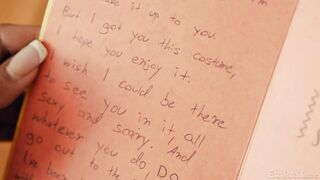 make it up to you.
But I got you this costume,
I hope you enjoy it.
I wish I could be there
to see you in it, all
sexy and scary. And
whatever you do, DO
go out to the
I've been